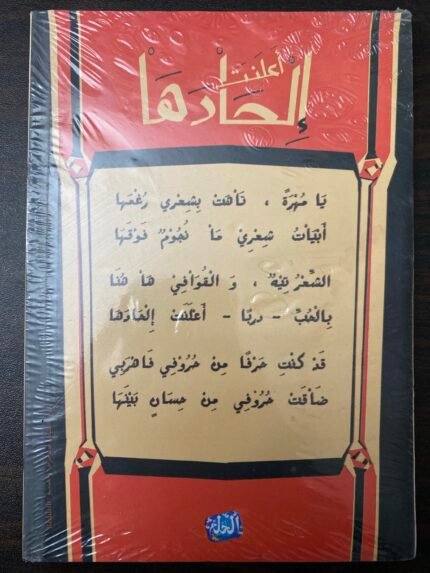 أعلنت
إلحادها
يَا مُهْرَةً ، تَاهَتْ بِشِعْرِي رُغْمَهَا
أَبْيَاتُ شِعْرِيْ مَا نُجُومٌ فَوْقَهَا
الشِّعْرُ تِيْهٌ ، وَ الْقَوَافِيْ هَا هُنَا
بِالْحُبِّ - دربًا - أَعْلَنَتْ إِلْحَادَهَا
قَدْ كُنْتِ حَرْفًا مِنْ حُرُوْفِي فَاهْرَبِي
ضَاقَتْ حُرُوْفِي مِنْ حِسَانٍ بَيْنَهَا
الحلم